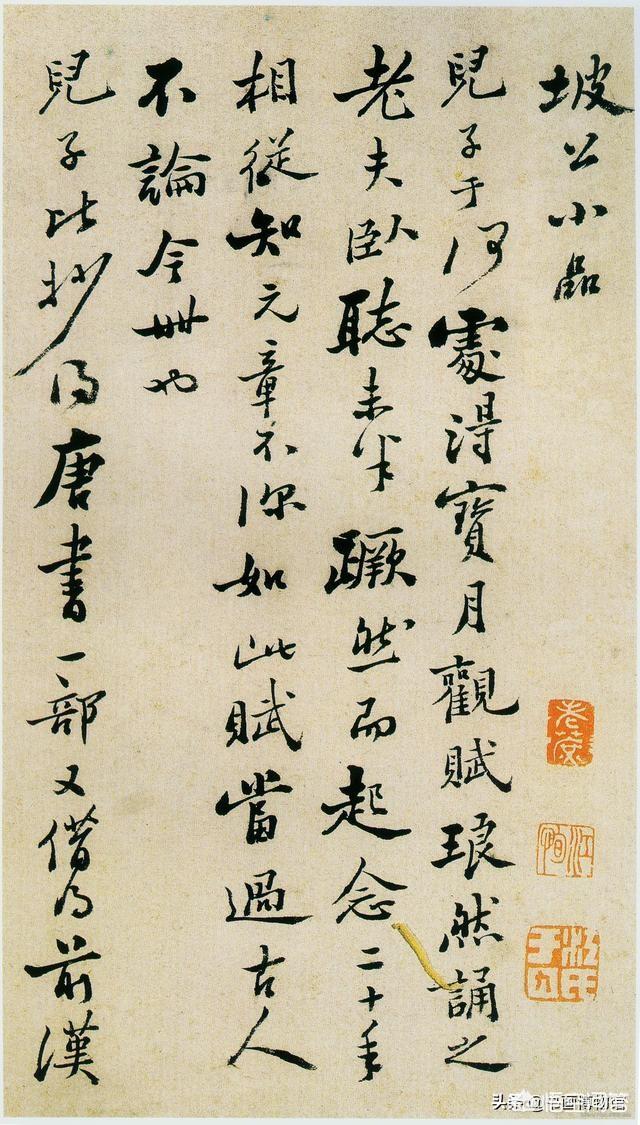 坡公小品
兒子于何處得寶月觀賦琅然誦之
老夫臥聽未半蹶然而起念二十年
相從知元章不深如此賦當過古人
不論今世也
兒子比抄得唐書一部又借得前漢
江恂
江氏子九